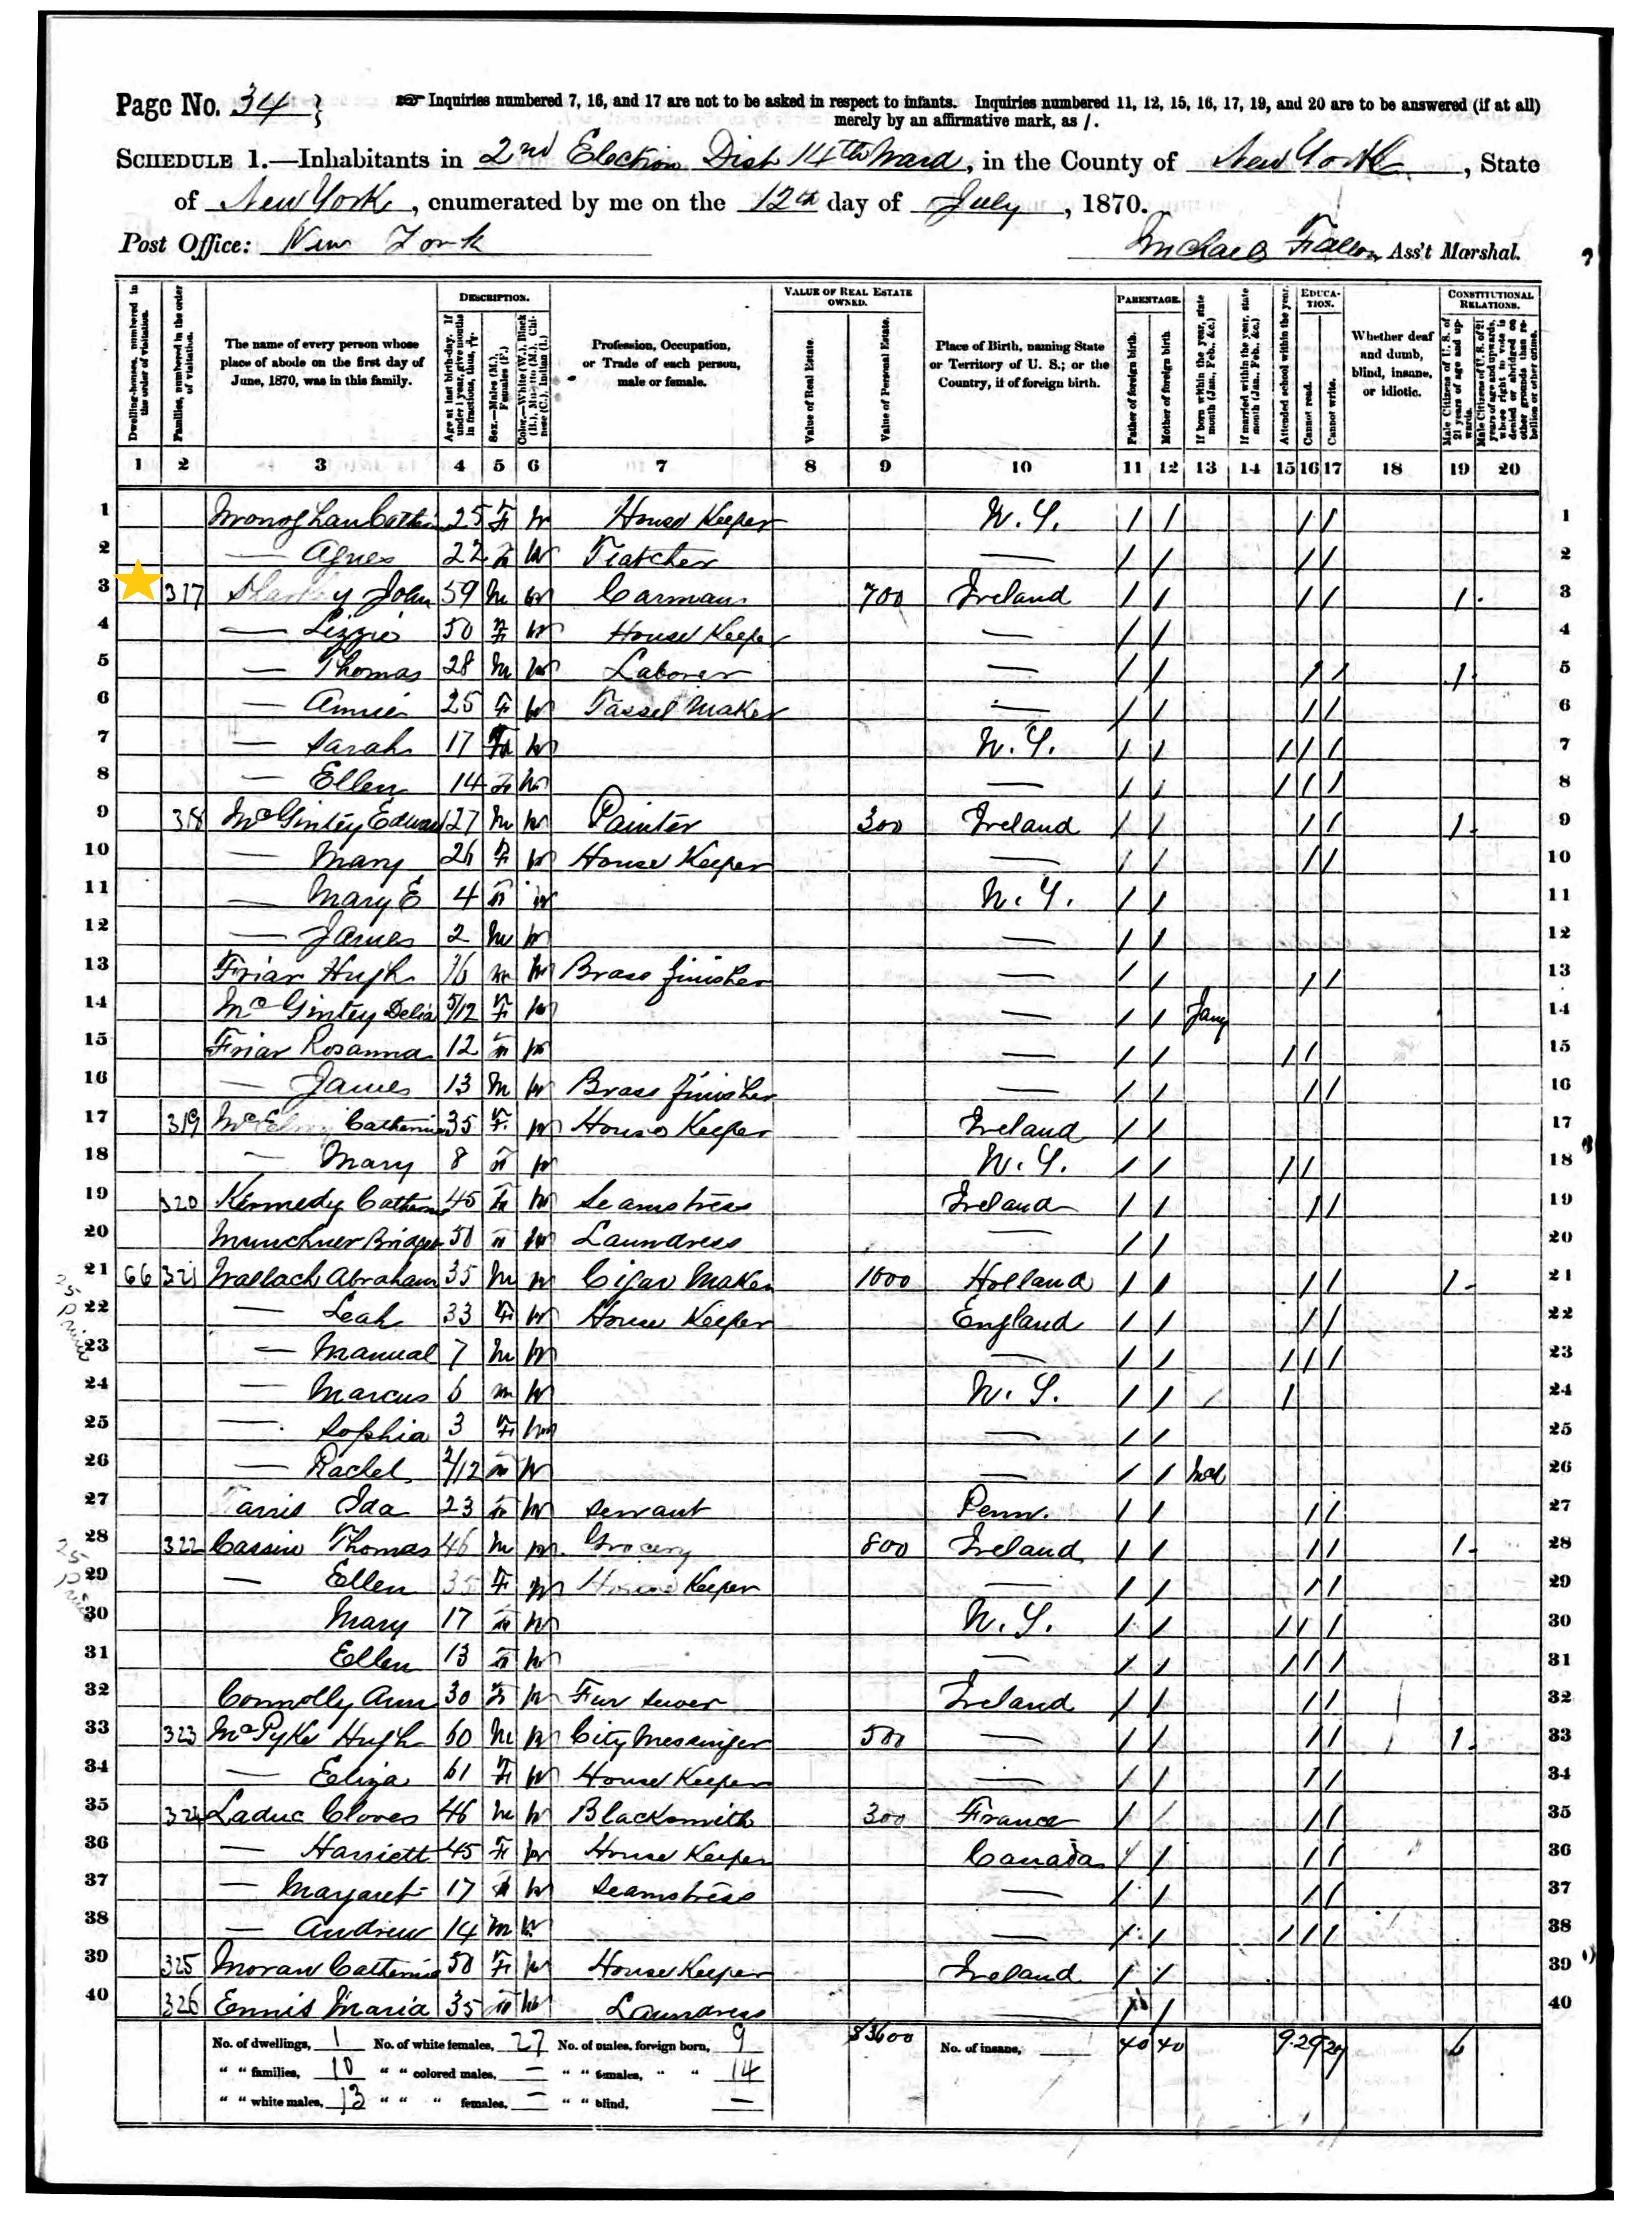 Page No. 34 Inquiries numbered 7, 16, and 17 are not to be asked in respect to infants. Inquiries numbered 11, 12, 15, 16, 17, 19, and 20 are to be answered (if at all)
merely by an affirmative mark, as /.
SCHEDULE 1.—Inhabitants in 2nd Election Dist 14th Ward, in the County of New York, State
of New York, enumerated by me on the 12th day of July, 1870.
Post Office: New York Michael Fallon, Ass't Marshal.
Dwelling-houses, numbered in the order of visitation.
Families, numbered in the order of visitation.
The name of every person whose place of abode on the first day of June, 1870, was in this family.
DESCRIPTION.
Age at last birth-day. If under 1 year, give months in fractions, thus, 3/12.
Sex.—Males (M.), Females (F.)
Color.—White (W.), Black (B.), Mulatto (M.), Chinese (C.), Indian (I.)
Profession, Occupation, or Trade of each person, male or female.
VALUE OF REAL ESTATE OWNED.
Value of Real Estate.
Value of Personal Estate.
Place of Birth, naming State or Territory of U. S.; or the Country, if of foreign birth.
PARENTAGE.
Father of foreign birth.
Mother of foreign birth.
If born within the year, state month (Jan., Feb., &c.)
If married within the year, state month (Jan., Feb., &c.)
EDUCATION.
Attended school within the year.
Cannot read.
Cannot write.
Whether deaf and dumb, blind, insane, or idiotic.
CONSTITUTIONAL RELATIONS.
Male Citizens of U. S. of 21 years of age and upwards.
Male Citizens of U. S. of 21 years of age and upwards, whose right to vote is denied or abridged on other grounds than rebellion or other crime.
1 2 3 4 5 6 7 8 9 10 11 12 13 14 15 16 17 18 19 20
1 Monoghan Catherin 25 F W House Keeper N.Y. / / / / 1
2 — Agnes 22 F W Teatcher — / / / / 2
3 317 John 59 M W Carman 700 Ireland / / / / 1 3
4 — Lizzie 50 F W House Keeper — / / 4
5 — Thomas 28 M W Laborer — / / / / 1 5
6 — Annie 25 F W Tassel Maker — / / / / 6
7 — Sarah 17 F W N.Y. / / / / / 7
8 — Ellen 14 F W — / / / / / 8
9 318 McGintey Edward 27 M W Painter 300 Ireland / / / / 1 9
10 — Mary 26 F W House Keeper — / / / / 10
11 — Mary E 4 F W N.Y. / / 11
12 — James 2 M W — / / 12
13 Friar Hugh 16 M W Brass finisher — / / / / 13
14 McGintey Delia 5/12 F W — / / Jany 14
15 Friar Rosanna 12 F W — / / / / 15
16 — James 13 M W Brass finisher — / / / / 16
17 319 Catherine 35 F W House Keeper Ireland / / 17
18 — Mary 8 F W N.Y. / / / / 18
19 320 Kennedy Catherine 45 F W Seamstress Ireland / / / / 19
20 Munchner Bridget 50 F W Laundress — / / 20
21 66 321 Wallach Abraham 35 M W Cigar Maker 1000 Holland / / / / 1 21
25 Prince
22 — Leah 33 F W House Keeper England / / / / 22
23 — Manual 7 M W — / / / / / 23
24 — Marcus 6 M W N.Y. / / / 24
25 — Sophia 3 F W — / / 25
26 — Rachel 2/12 F W — / / 26
27 Ida 23 F W Servant Penn. / / / / 27
28 322 Cassin Thomas 46 M W Grocery 800 Ireland / / / / 1 28
25 Prince
29 — Ellen 35 F W House Keeper — / / / / 29
30 Mary 17 F W N.Y. / / / / / 30
31 Ellen 13 F W — / / / / / 31
32 Connolly Ann 30 F W Fur Sewer Ireland / / / / 32
33 323 McPyke Hugh 60 M W City Messinger 500 — / / / / 1 33
34 — Eliza 61 F W House Keeper — / / / / 34
35 324 Laduc Cloves 46 M W Blacksmith 300 France / / / / 35
36 — Harriett 45 F W House Keeper Canada / / / / 36
37 — Margaret 17 F W Seamstress — / / / / 37
38 — Andrew 14 M W — / / / / / 38
39 325 Moran Catherine 50 F W House Keeper Ireland / / 39
40 326 Ennis Maria 35 F W Laundress — / / 40
No. of dwellings, 1 No. of white females, 27 No. of males, foreign born, 9 $3600 No. of insane, 40 40 9 29 29 6
" " families, 10 " " colored males, — " " females, " " 14
" " white males, 13 " " " females, — " " blind, —